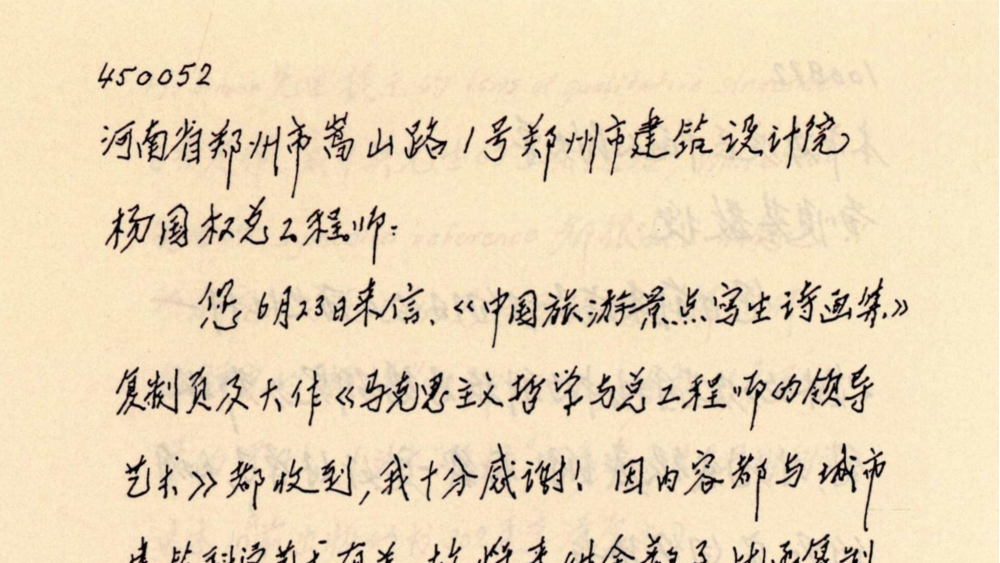 450052
河南省郑州市嵩山路1号郑州市建筑设计院
杨国权总工程师:
您6月23日来信、《中国旅游景点写生诗画集》
复制页及大作《马克思主义哲学与总工程师的领导
艺术》都收到,我十分感谢! 因内容都与城市